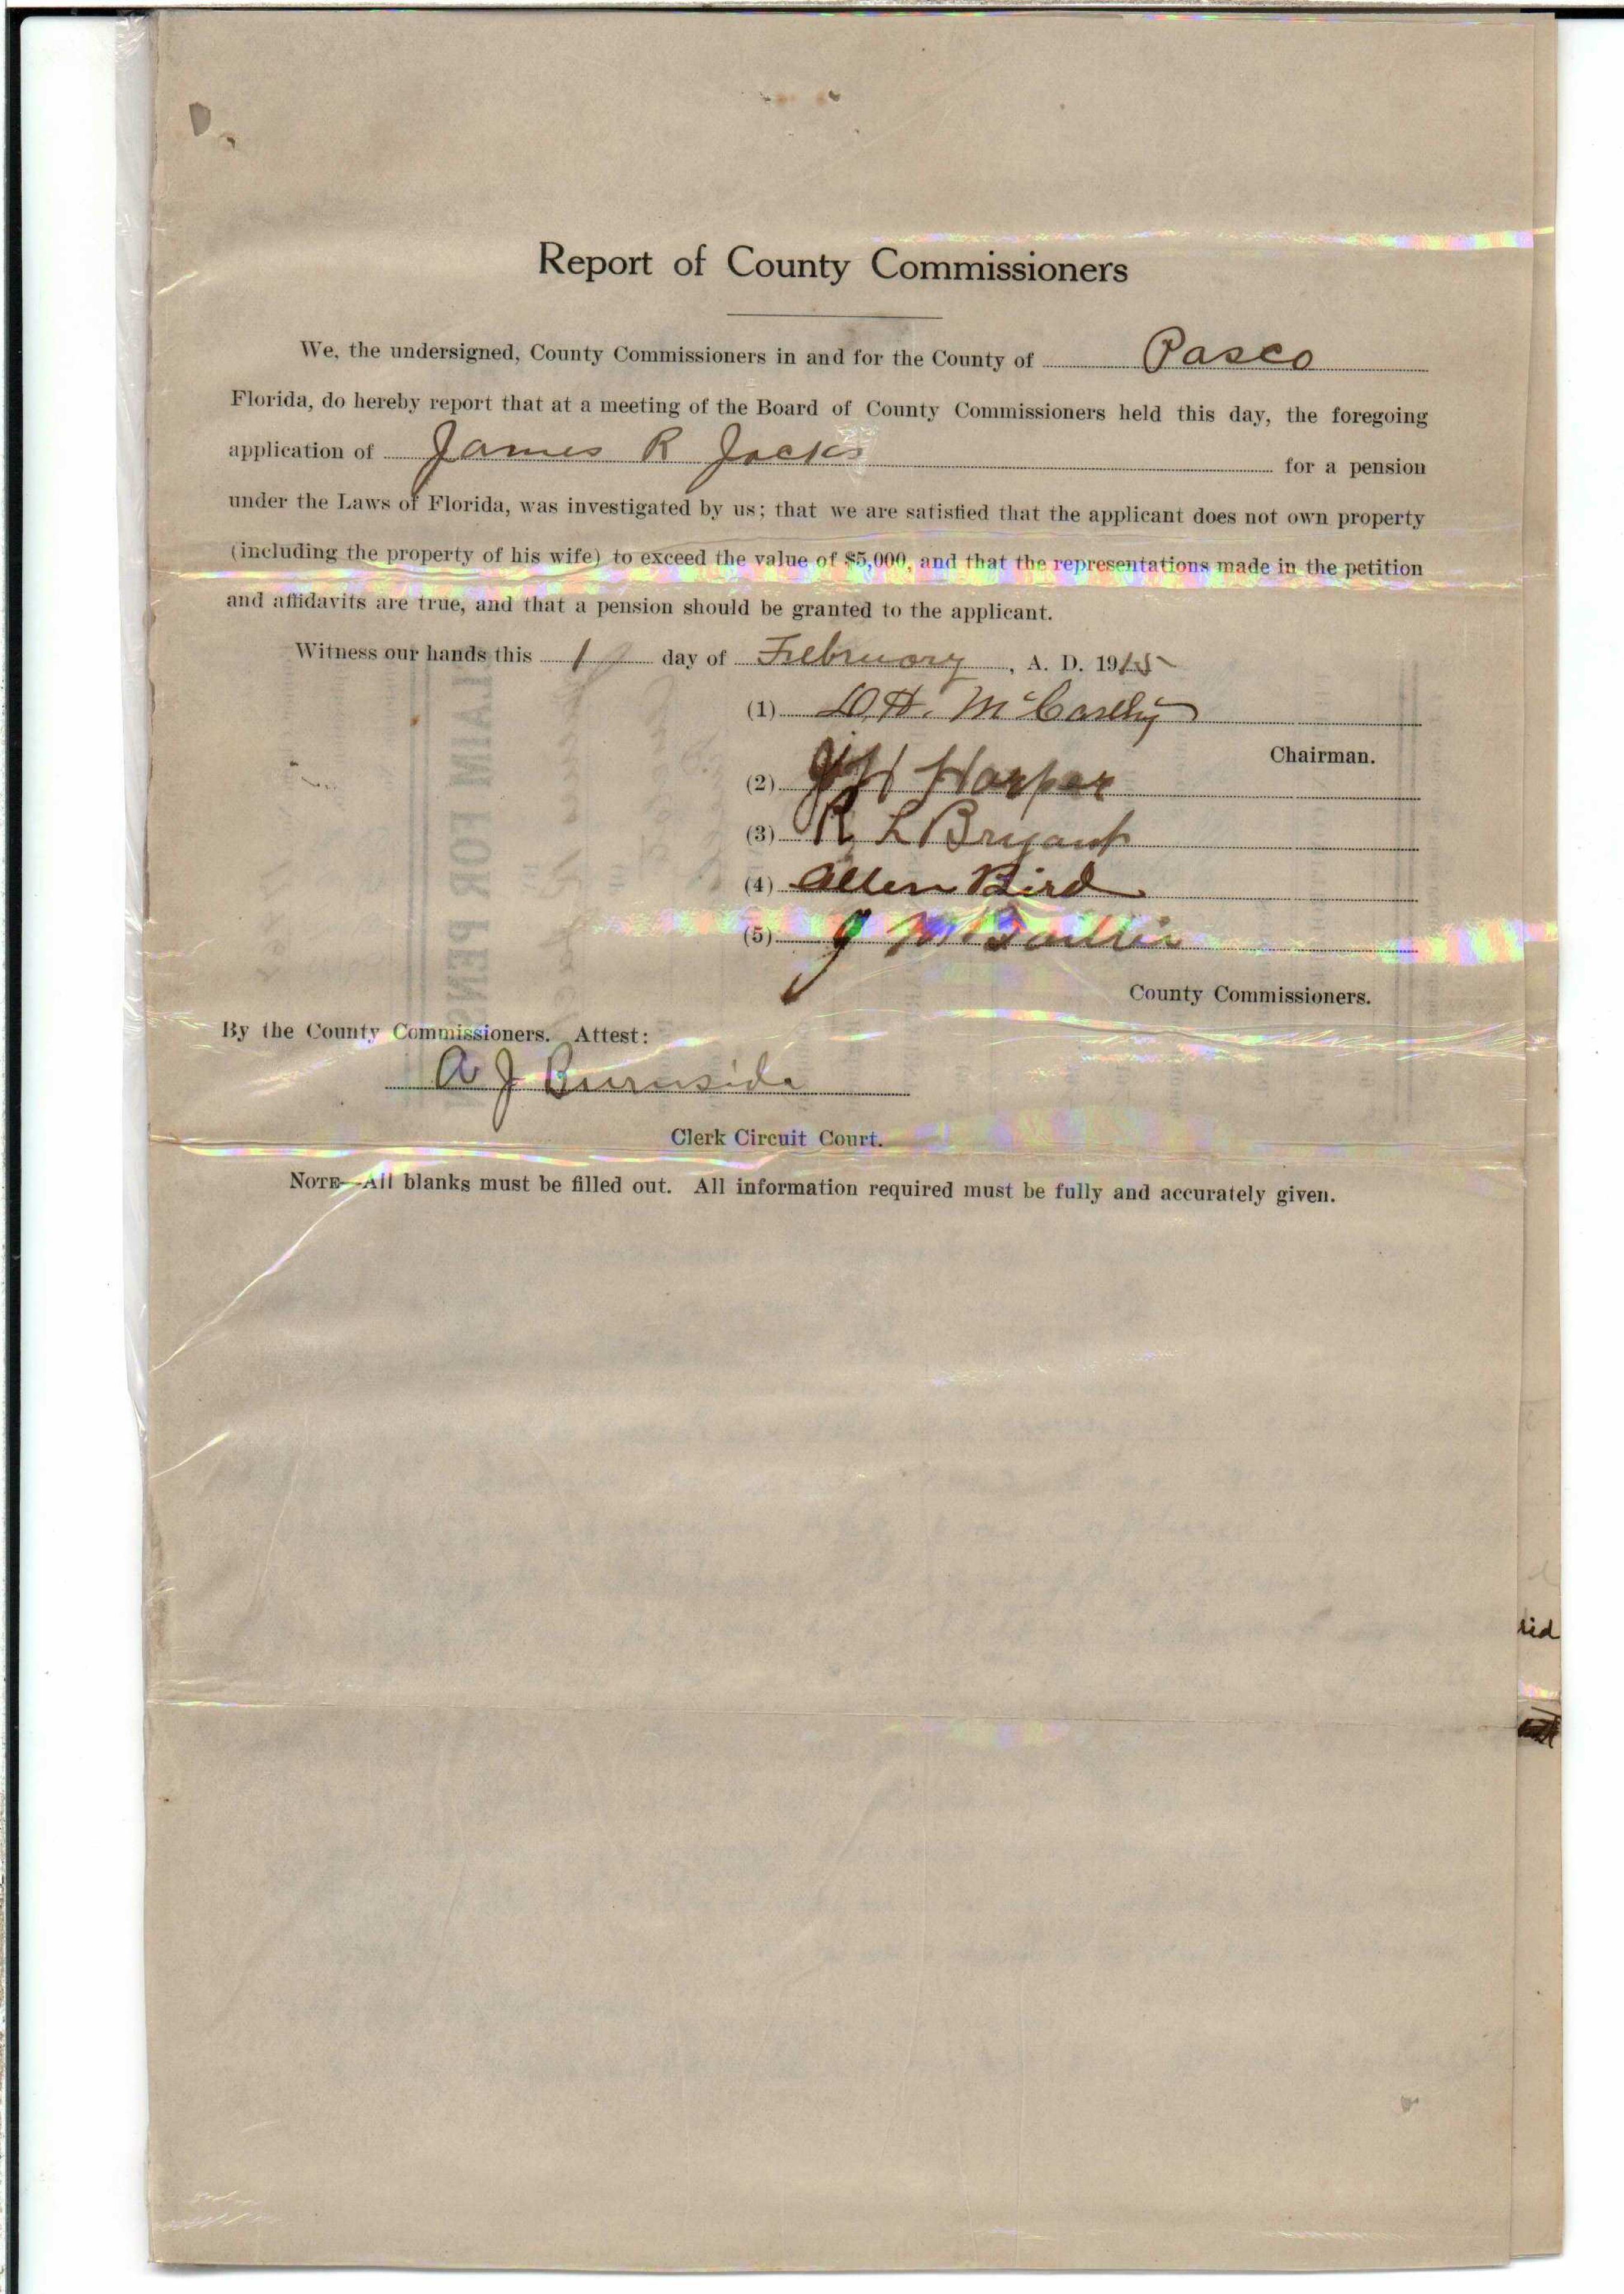 Report of County Commissioners
We, the undersigned, County Commissioners in and for the County of Pasco
Florida, do hereby report that at a meeting of the Board of County Commissioners held this day, the foregoing
application of James R Jacks for a pension
under the Laws of Florida, was investigated by us; that we are satisfied that the applicant does not own property
(including the property of his wife) to exceed the value of $5,000, and that the representations made in the petition
and affidavits are true, and that a pension should be granted to the applicant.
Witness our hands this 1 day of February, A. D. 1915
(1) D. H. 
Chairman.
(2) Harper
(3) R L Bryant
(4) Allen Bird
(5) J M
County Commissioners.
By the County Commissioners. Attest:
A J Burnside
Clerk Circuit Court.
NOTE—All blanks must be filled out. All information required must be fully and accurately given.